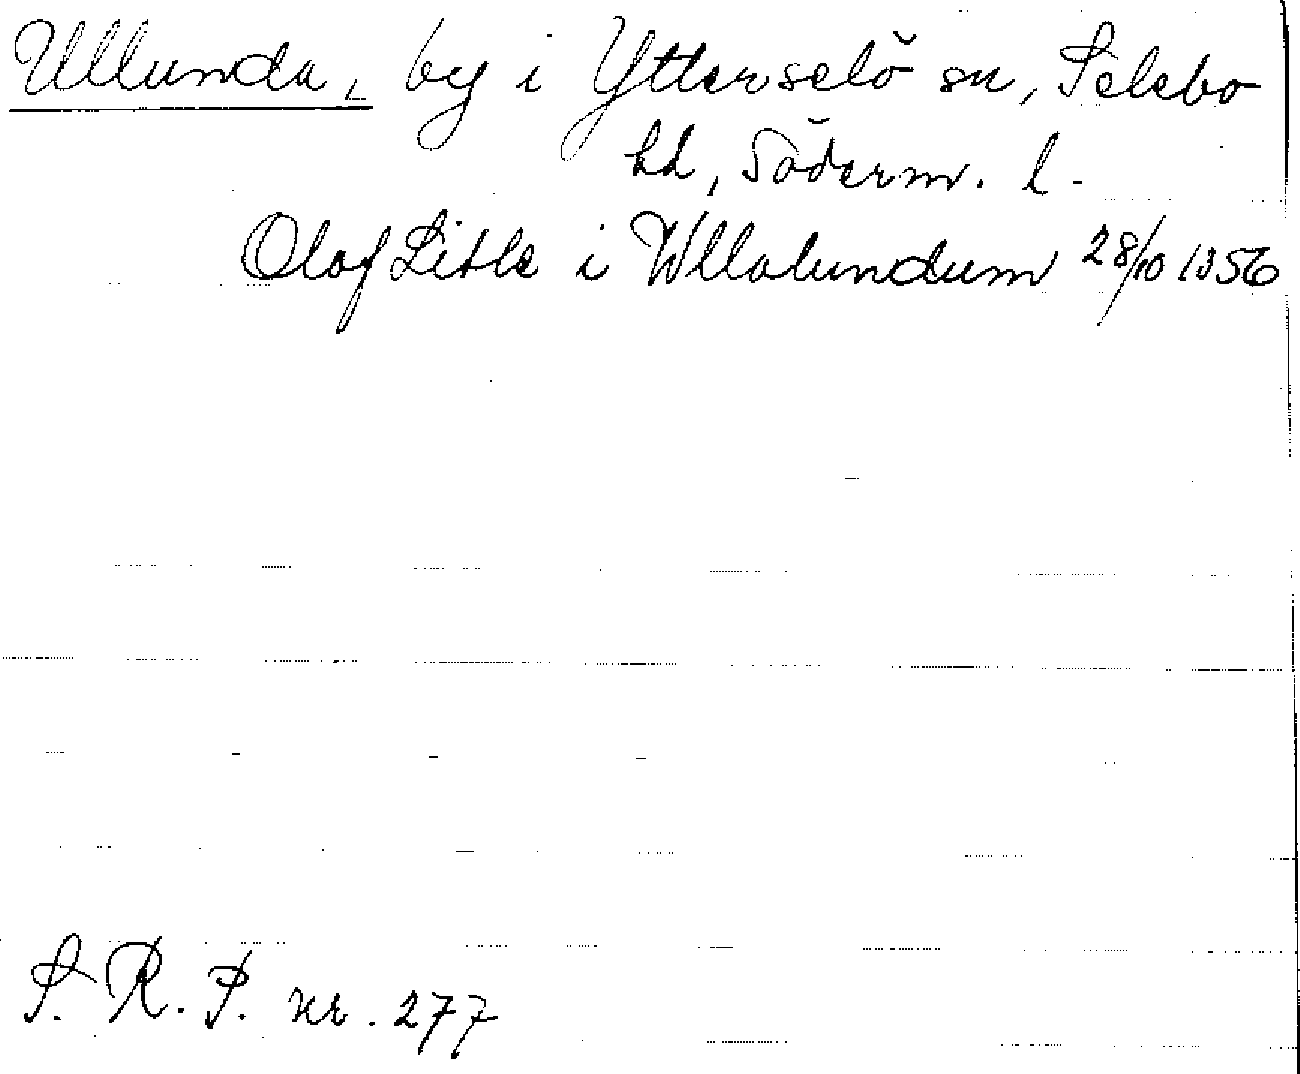 Ullunda, by i Ytterselö sn, Selebo
hd, Söderm. l.
Olof Litle i Wllalundum 28/10 1356
S. R. P. nr. 277